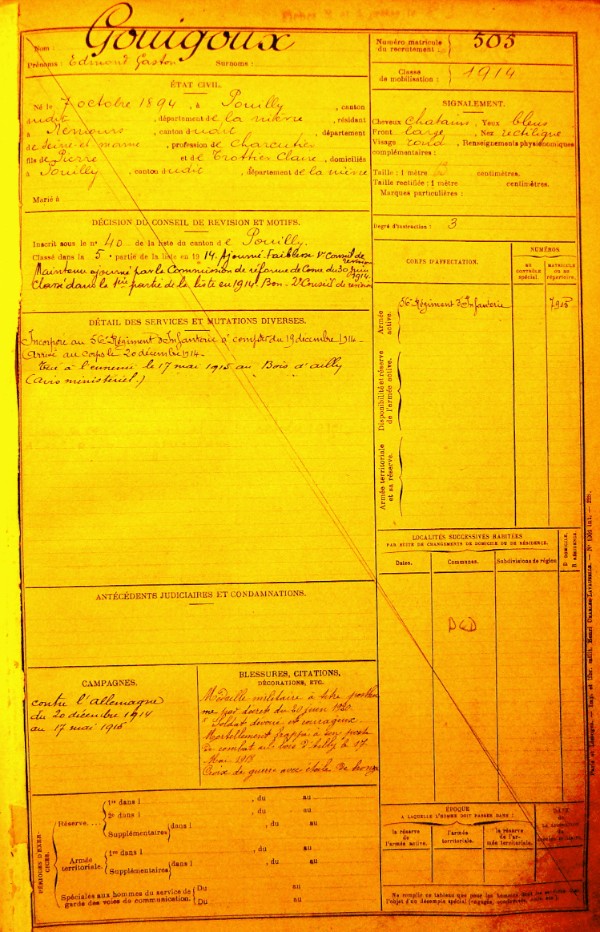 Gouigoux
Nom :
Prénoms : Edmond Gaston Surnoms :
Numéro matricule du recrutement : 505
Classe de mobilisation : 1914
ÉTAT CIVIL.
Né le 7 octobre 1894, à Pouilly, canton
dudit, département de la nièvre, résidant
à Nemours, canton dudit, département
de Seine et marne, profession de Charcutier
fils de Pierre et de Trottier Claire, domiciliés
à Pouilly, canton dudit, département de la nièvre
Marié à
SIGNALEMENT.
Cheveux Chatains, Yeux bleus
Front large, Nez rectiligne
Visage rond, Renseignements physionomiques
complémentaires :
Taille : 1 mètre centimètres.
Taille rectifiée : 1 mètre centimètres.
Marques particulières :
Degré d'instruction : 3
DÉCISION DU CONSEIL DE REVISION ET MOTIFS.
Inscrit sous le n° 40 de la liste du canton de Pouilly.
Classé dans la 5e partie de la liste en 1914. Ajourné. Faiblesse. Conseil de revision
Maintenu ajourné par la Commission de réforme de Cosne du 30 juin 1914
Classé dans la 1ère partie de la liste en 1914. Bon. Conseil de revision
CORPS D'AFFECTATION.
NUMÉROS.
AU CONTRÔLE SPÉCIAL.
MATRICULE OU AU RÉPERTOIRE.
Armée active.
56e Régiment d'Infanterie
Disponibilité et réserve de l'armée active.
Armée territoriale et sa réserve.
DÉTAIL DES SERVICES ET MUTATIONS DIVERSES.
Incorporé au 56e Régiment d'Infanterie à compter du 19 décembre 1914.
Arrivé au corps le 20 décembre 1914.
Tué à l'ennemi le 17 mai 1915 au Bois d'ailly
(Avis ministériel)
LOCALITÉS SUCCESSIVES HABITÉES
PAR SUITE DE CHANGEMENTS DE DOMICILE OU DE RÉSIDENCE.
Dates. Communes. Subdivisions de région. D DOMICILE. R RÉSIDENCE.
DCD
ANTÉCÉDENTS JUDICIAIRES ET CONDAMNATIONS.
CAMPAGNES.
contre l'allemagne
du 20 décembre 1914
au 17 mai 1915
BLESSURES, CITATIONS,
DÉCORATIONS, ETC.
Médaille militaire à titre posthu
me par décret du 1920.
Soldat dévoué et courageux
Mortellement frappé à son poste
de combat au bois d'ailly le 17
Mai 1915
Croix de guerre avec étoile de bronze
PÉRIODES D'EXERCICES.
Réserve.... 1re dans l , du au
2e dans l , du au
Supplémentaires dans l , du au
, du au
Armée territoriale. 1re dans l , du au
Supplémentaires dans l , du au
Spéciales aux hommes du service de garde des voies de communication. Du au
Du au
ÉPOQUE
À LAQUELLE L'HOMME DOIT PASSER DANS :
la réserve de l'armée active.
l'armée territoriale.
la réserve de l'armée territoriale.